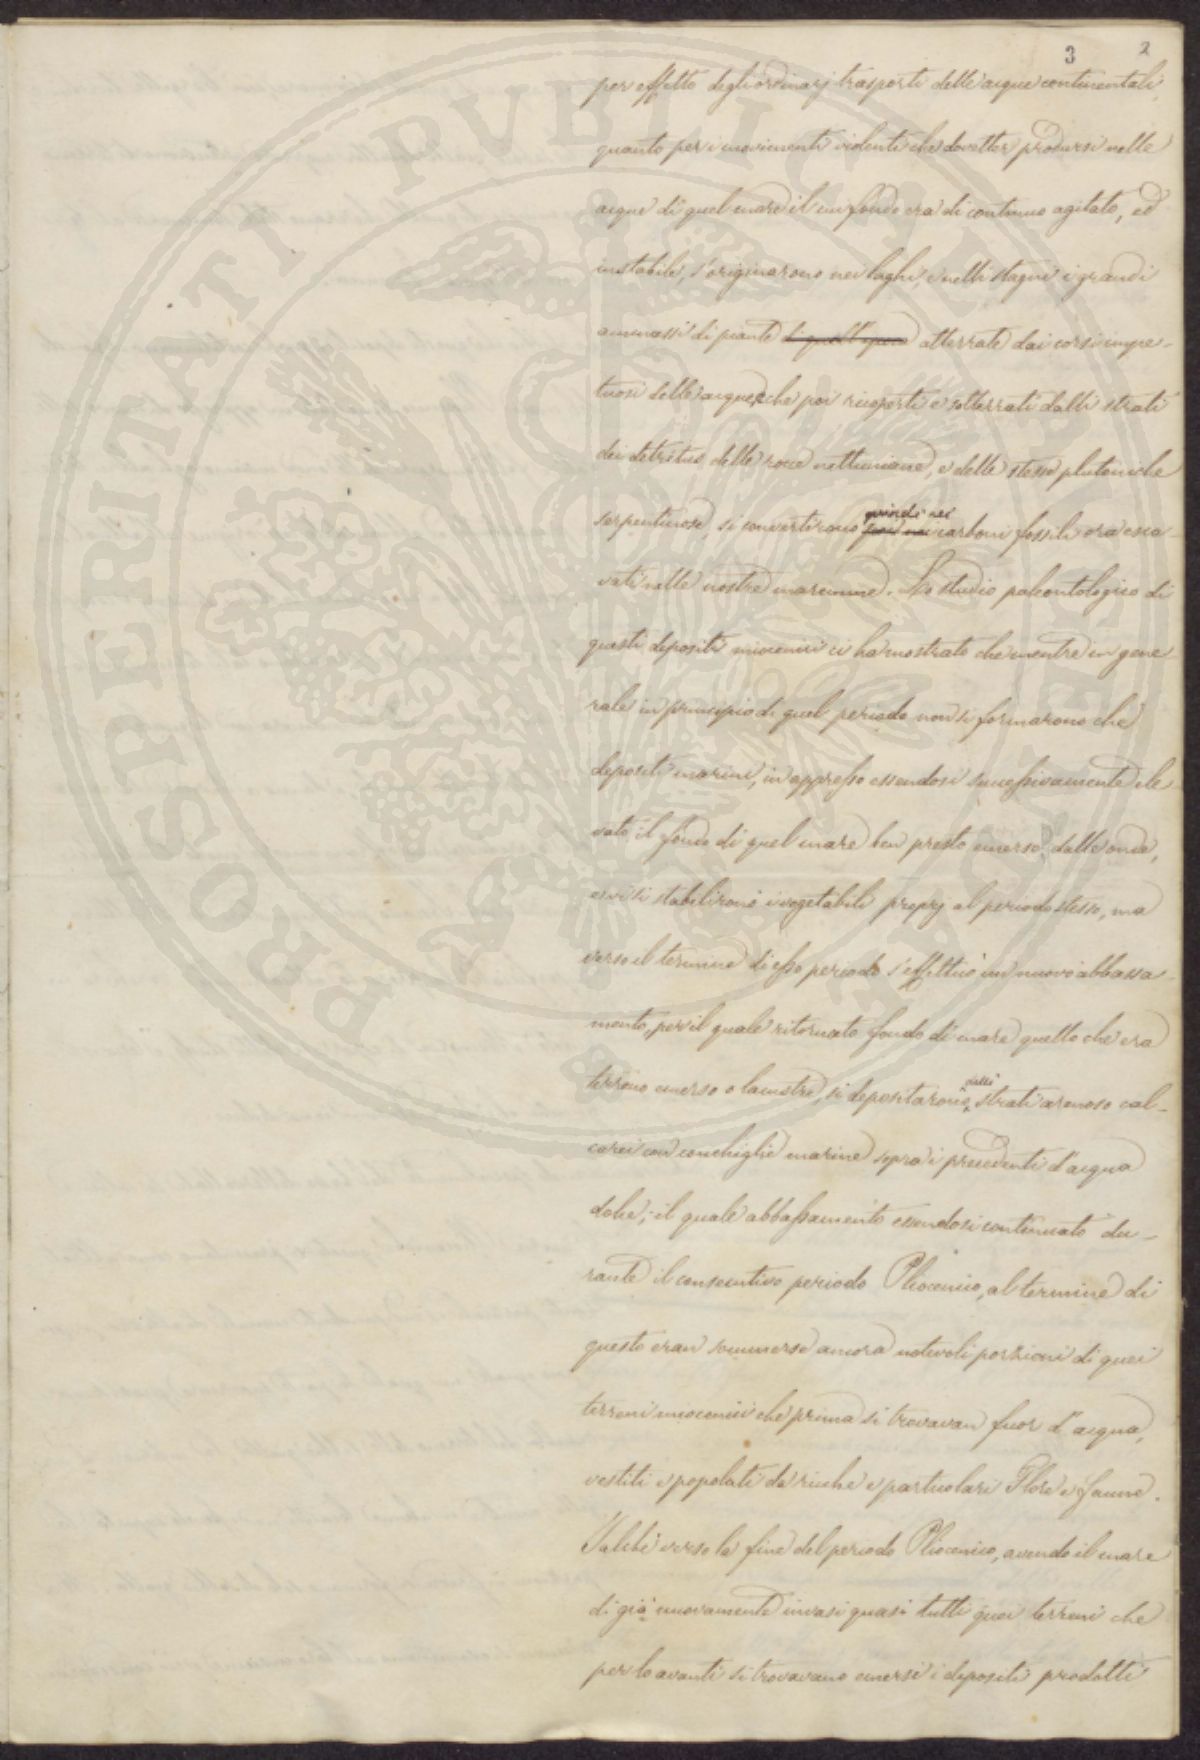 3 2
per effetto degli ordinarj trasporti delle acque continentali,
quanto per i movimenti violenti che dovetter prodursi nelle
acque di quel mare il cui fondo era di continuo agitato, ed
instabile, s'originarono nei laghi, e nelli stagni i grandi
ammassi di piante di quell'epoca atterrate dai corsi impe-
tuosi delle acque, che poi ricoperti e sotterrati dalli strati
dei detritus delle rocce nettuniane, e delle stesse plutoniche
serpentinose, si convertirono quindi nei carboni fossili ora esca-
vati nelle nostre maremme. Lo studio paleontologico di
questi depositi miocenici ci ha mostrato che mentre in gene-
rale in principio di quel periodo non si formarono che
depositi marini, in appresso essendosi successivamente ele-
vato il fondo di quel mare ben presto emerse dalle onde,
e vi si stabilirono i vegetabili proprj al periodo stesso, ma
verso il termine di esso periodo s'effettuò un nuovo abbassa-
mento, per il quale ritornato fondo di mare quello che era
terreno emerso o lacustre, si depositarono delli strati arenoso cal-
carei con conchiglie marine sopra i precedenti d'acqua
dolce; il quale abbassamento essendosi continuato du-
rante il consecutivo periodo Pliocenico, al termine di
questo eran sommerse ancora notevoli porzioni di quei
terreni miocenici che prima si trovavan fuor d'acqua,
vestiti e popolati da ricche e particolari Flore e Faune.
Talchè verso la fine del periodo Pliocenico, avendo il mare
di già nuovamente invasi quasi tutti quei terreni che
per lo avanti si trovavano emersi i depositi prodotti
PROSPERITATI PVBLICAE AVGENDAE